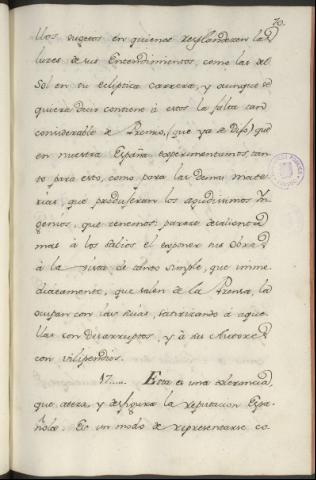 70.
llos sugetos en quienes resplandecen las
luces de sus Entendimientos, como las del
Sol en su ecliptica carrera, y aunque se
quiera decir contiene à estos la falta tan
considerable de Premio, (que ya se dijo) que
en nuestra España experimentamos, tan-
to para esto, como para las demas mate-
rias, que produjeran los agudisimos In-
genios, que tenemos: parece desalienta
mas à los sabios el exponer sus obras
à la de tanto simple, que inme-
diatamente, que salen de la Prensa, la
ocupan con las suias, satirizando à aque-
llas con desarruptos, y à su Autores
con vilipendios.
17..... Esta es una tolerancia,
que atera, y desfigura la reputacion Espa-
ñola. Es un modo de representarse co-